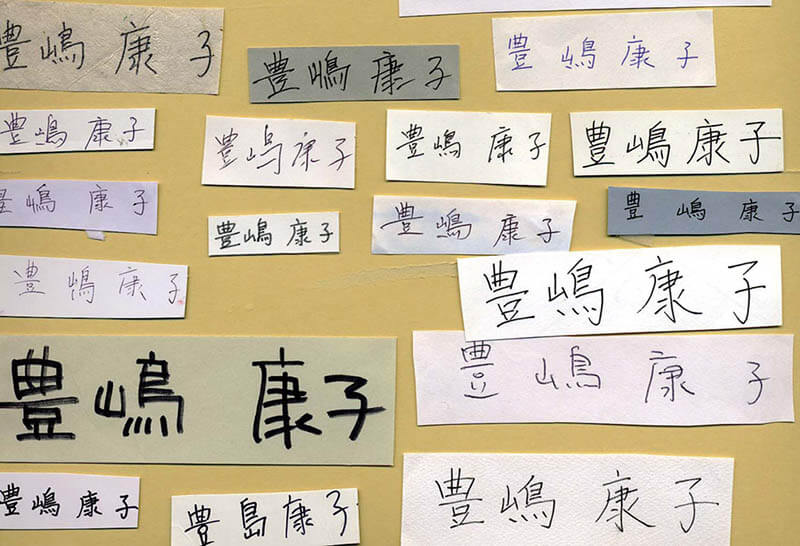 豊嶋 康子
豊嶋康子
豊嶋康子
豊嶋 康子
豊嶋康子
豊嶋 康子
豊嶋康子
豊嶋 康子
豊嶋 康子
豊嶋 康子
豊 嶋 康子
豊嶋康子
豊嶋 康子
豊嶋 康子
豊嶋 康 子
豊嶋康子
豊島康子
豊嶋 康子